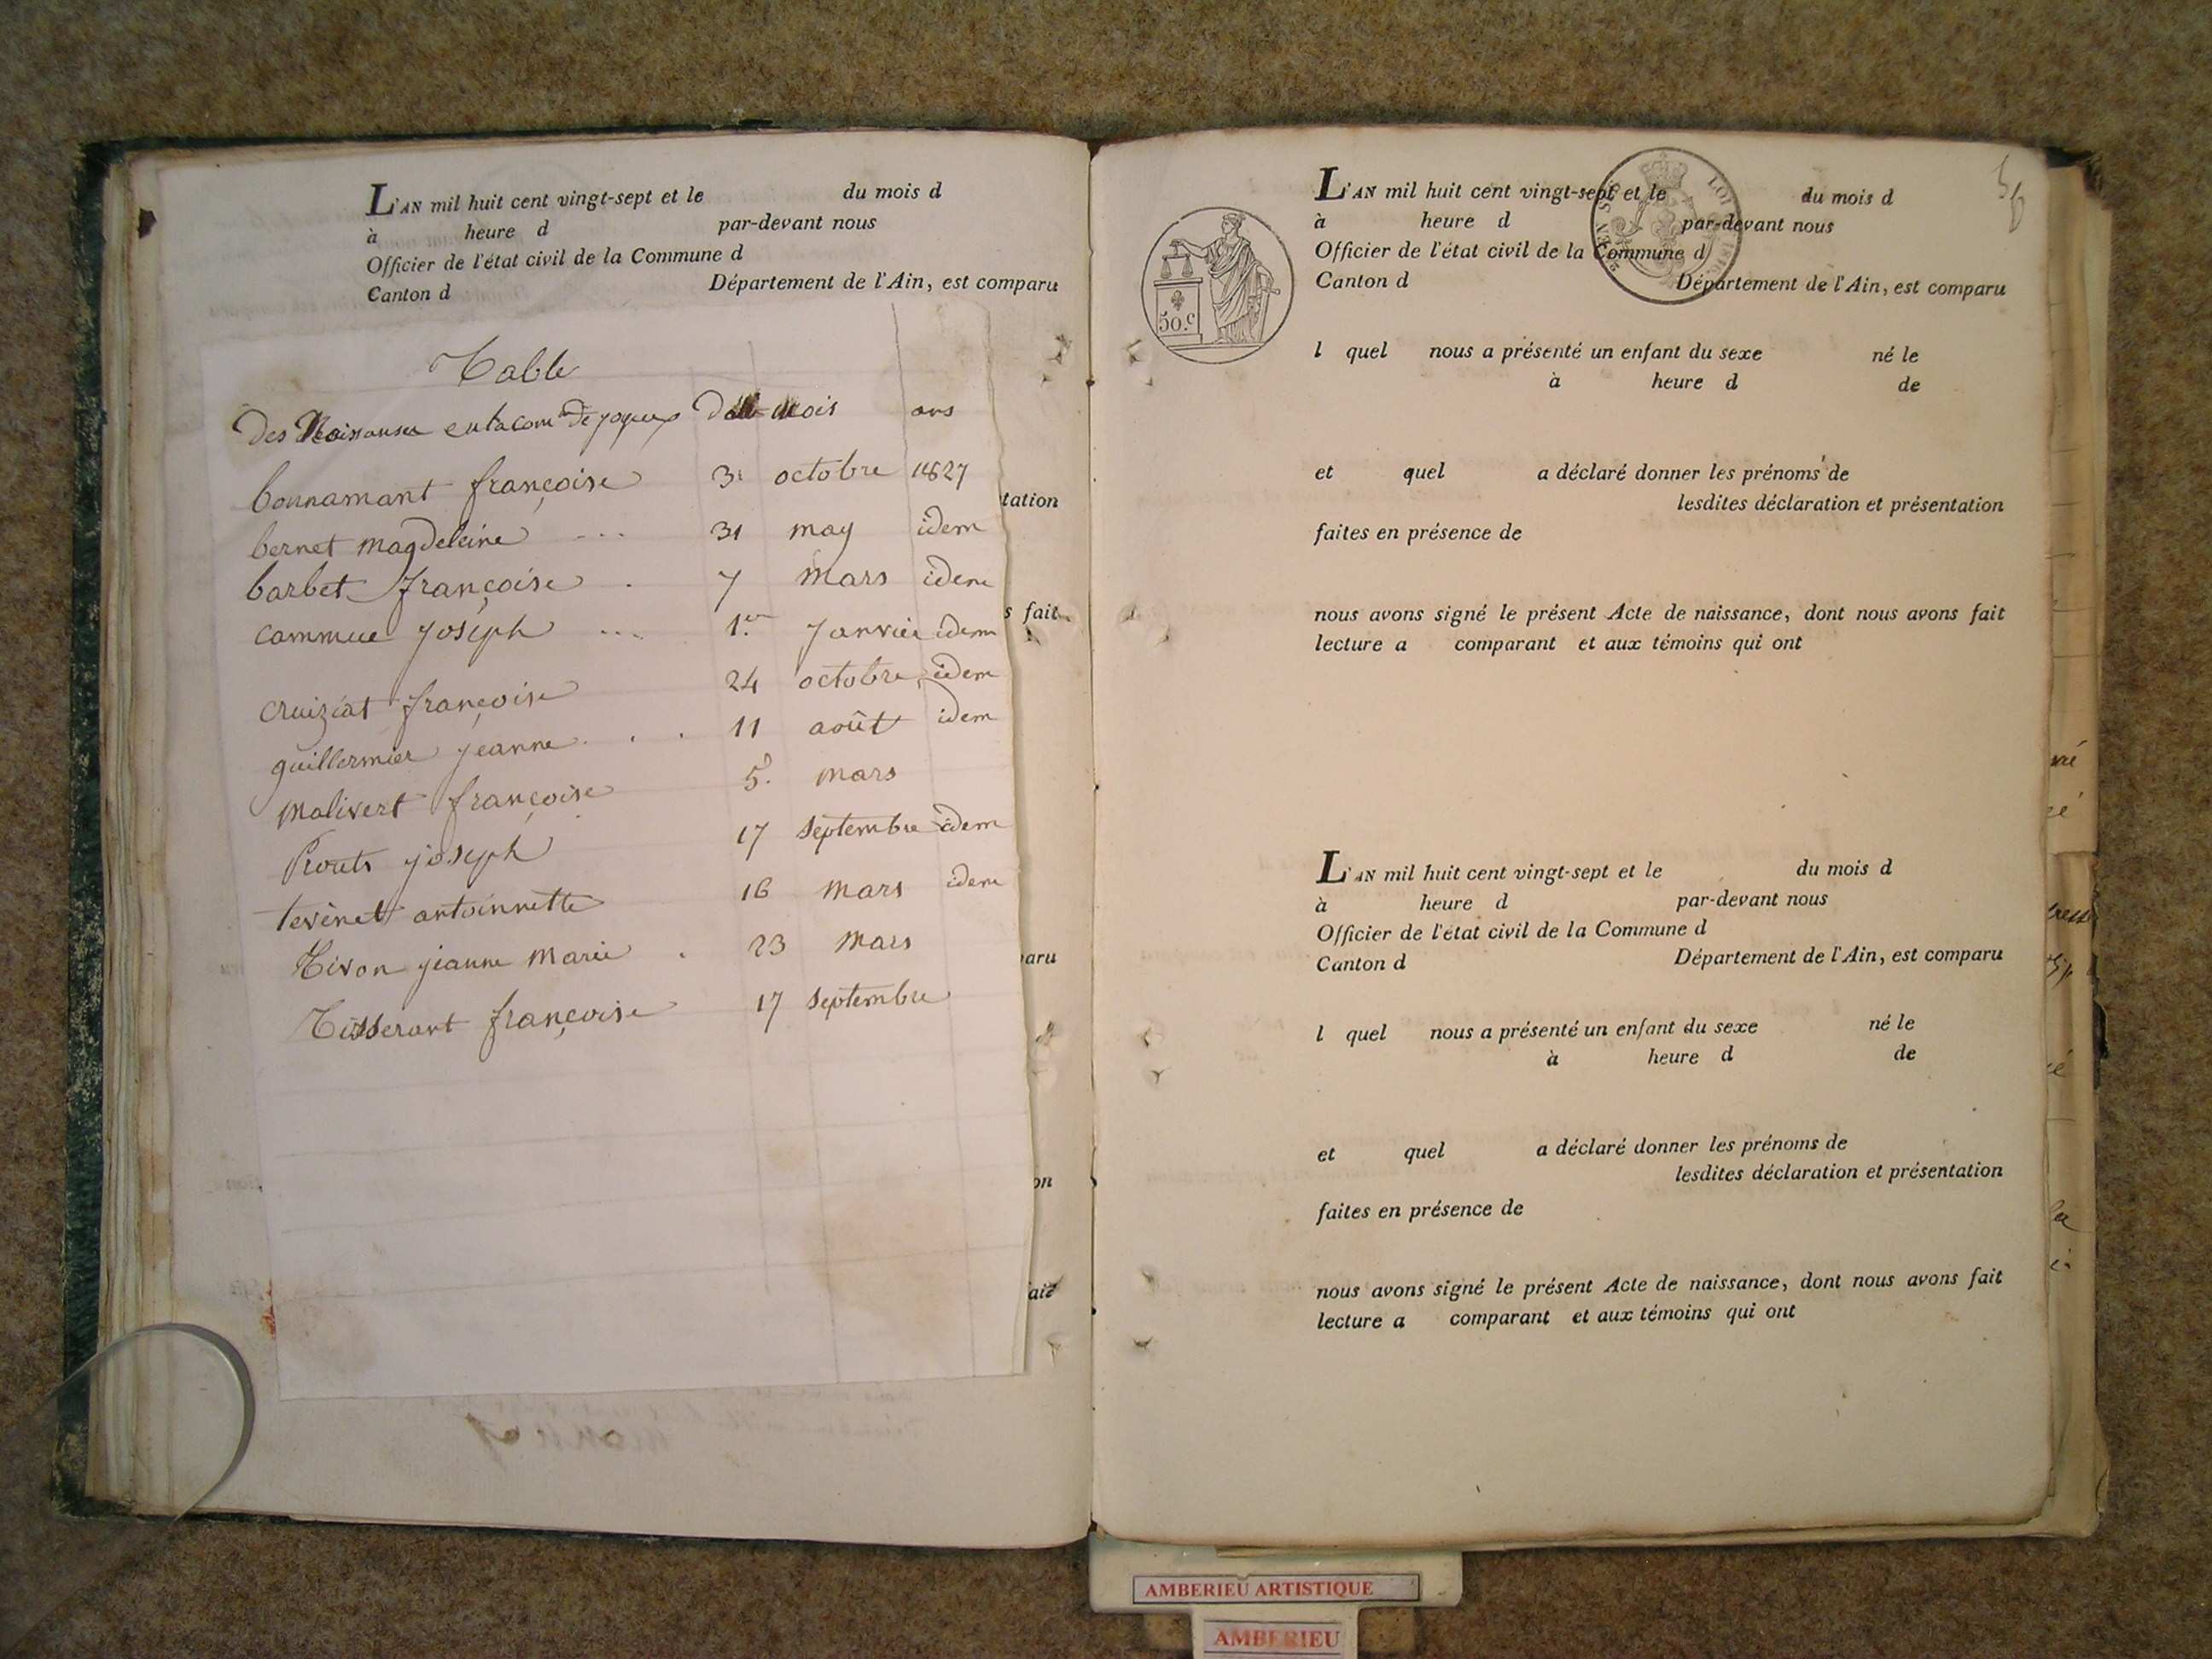 L'AN mil huit cent vingt-sept et le du mois d
à heure d par-devant nous
Officier de l'état civil de la Commune d
Canton d Département de l'Ain, est comparu
Table
Des Naissances en la com de mois ans
bonnamant françoise 31 octobre 1827
bernet magdeleine ... 31 may idem
barbet françoise . 7 mars idem
joseph ... 1.er janvier idem
cruiziat françoise 24 octobre idem
guillermier jeanne . . . 11 août idem
malivert françoise 5. mars
Prouts joseph 17 septembre idem
tevenet antoinnette 16 mars idem
Tivon jeanne marie . 23 mars
Tisserant françoise 17 septembre
tation
s fait
aru
on
ait
L'AN mil huit cent vingt-sept et le du mois d
à heure d par-devant nous
Officier de l'état civil de la Commune d
Canton d Département de l'Ain, est comparu
50.c
l quel nous a présenté un enfant du sexe né le
à heure d de
et quel a déclaré donner les prénoms de
lesdites déclaration et présentation
faites en présence de
nous avons signé le présent Acte de naissance, dont nous avons fait
lecture a comparant et aux témoins qui ont
L'AN mil huit cent vingt-sept et le du mois d
à heure d par-devant nous
Officier de l'état civil de la Commune d
Canton d Département de l'Ain, est comparu
l quel nous a présenté un enfant du sexe né le
à heure d de
et quel a déclaré donner les prénoms de
lesdites déclaration et présentation
faites en présence de
nous avons signé le présent Acte de naissance, dont nous avons fait
lecture a comparant et aux témoins qui ont
AMBERIEU ARTISTIQUE
AMBERIEU